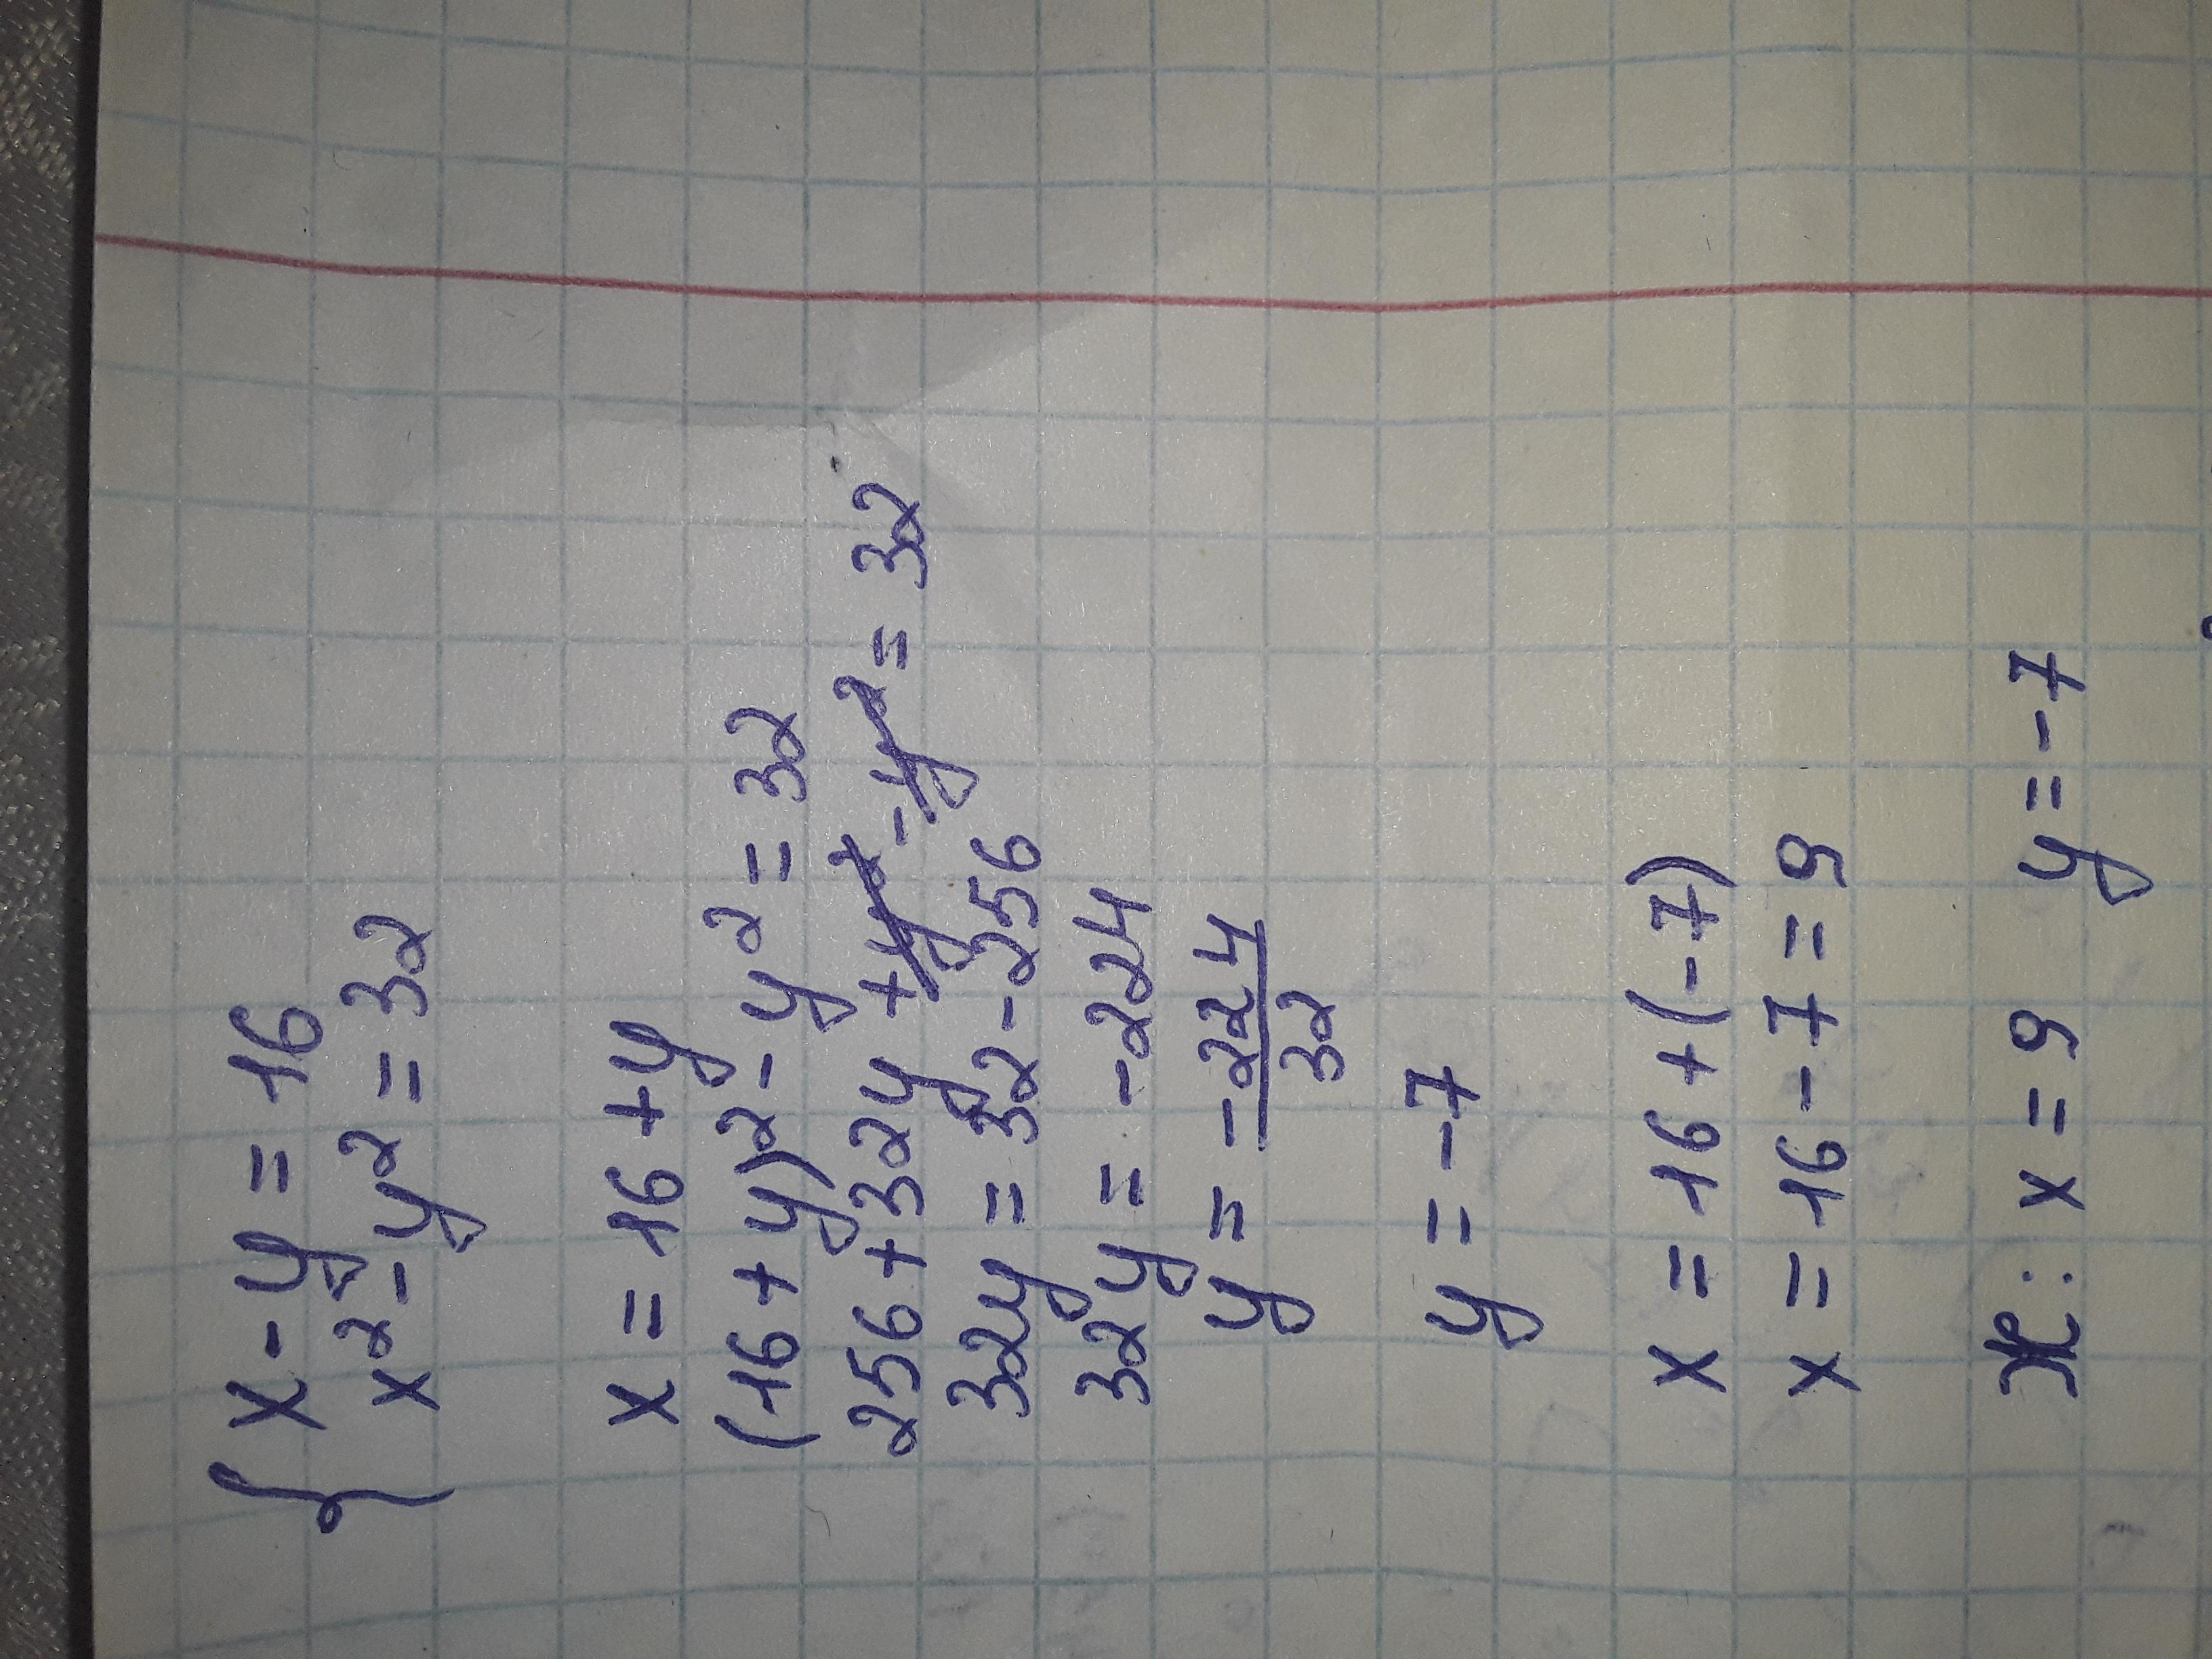 { x - y = 16
x² - y² = 32
x = 16 + y
(16 + y)² - y² = 32
256 + 32y + y² - y² = 32
32y = 32 - 256
32y = -224
y = -224/32
y = -7
x = 16 + (-7)
x = 16 - 7 = 9
: x = 9 y = -7